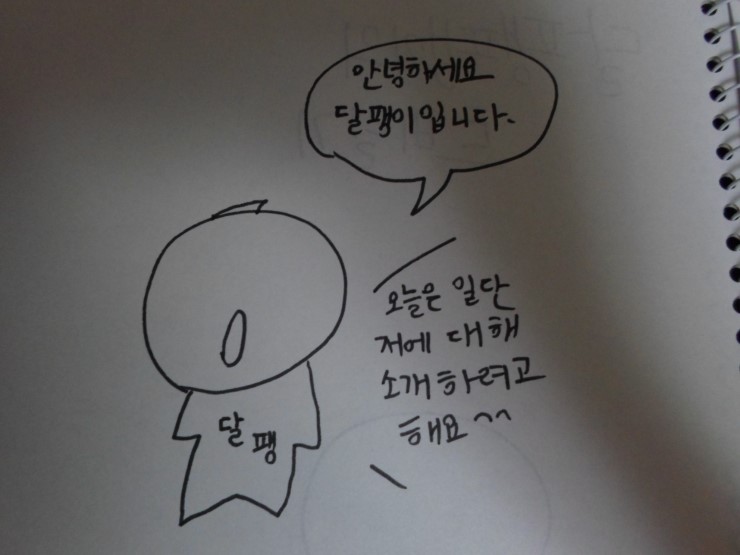 안녕하세요
달팽이입니다.
오늘은 일단
저에 대해
소개하려고
해요^^
달팽